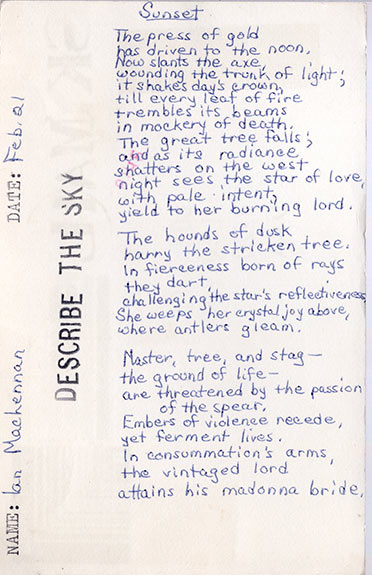 Sunset
The press of gold
has driven to the noon.
Now slants the axe,
wounding the trunk of light;
it shakes day's crown,
till every leaf of fire
trembles its beams
in mockery of death.
The great tree falls;
and as its radiance
shatters on the west
night sees the star of love,
with pale intent,
yield to her burning lord.
The hounds of dusk
harry the stricken tree.
In fierceness born of rays
they dart,
challenging the star's reflectiveness.
She weeps her crystal joy above,
where antlers gleam.
Master, tree, and stag—
the ground of life—
are threatened by the passion
of the spear.
Embers of violence recede,
yet ferment lives.
In consummation's arms,
the vintaged lord
attains his madonna bride.
DESCRIBE THE SKY
NAME: Ian MacLennan DATE: Feb. 21